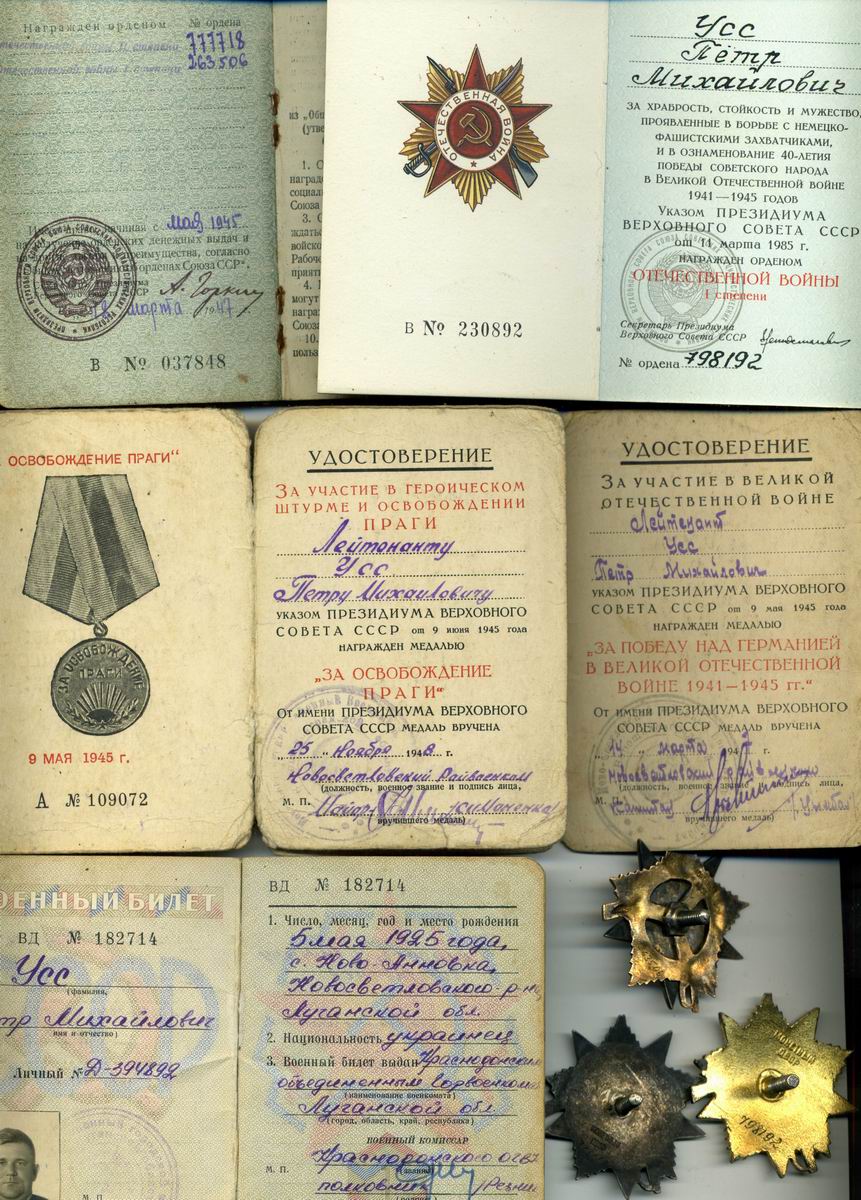 Награжден орденом № ордена
Отечественной войны II степени 777718
Отечественной войны I степени 263506
мая 1945
на получение орденских денежных выдач и
преимущества, согласно
орденах Союза ССР".
А. Горкин
марта 1947
В № 037848
из „Общ
(утве
1. С
наград
социал
Союза
3. С
ждать
войско
Рабоче
прият
4. 
могут
наград
Союза
10.
польз
ОТЕЧЕСТВЕННАЯ ВОЙНА
В № 230892
Усс
Пётр
Михайлович
ЗА ХРАБРОСТЬ, СТОЙКОСТЬ И МУЖЕСТВО,
ПРОЯВЛЕННЫЕ В БОРЬБЕ С НЕМЕЦКО-
ФАШИСТСКИМИ ЗАХВАТЧИКАМИ,
И В ОЗНАМЕНОВАНИЕ 40-ЛЕТИЯ
ПОБЕДЫ СОВЕТСКОГО НАРОДА
В ВЕЛИКОЙ ОТЕЧЕСТВЕННОЙ ВОЙНЕ
1941—1945 ГОДОВ
УКАЗОМ ПРЕЗИДИУМА
ВЕРХОВНОГО СОВЕТА СССР
от 11 марта 1985 г.
НАГРАЖДЕН ОРДЕНОМ
ОТЕЧЕСТВЕННОЙ ВОЙНЫ
I степени
Секретарь Президиума
Верховного Совета СССР
№ ордена 798192
ОСВОБОЖДЕНИЕ ПРАГИ“
ЗА ОСВОБОЖДЕНИЕ
ПРАГИ
9 МАЯ 1945 г.
А № 109072
УДОСТОВЕРЕНИЕ
ЗА УЧАСТИЕ В ГЕРОИЧЕСКОМ
ШТУРМЕ И ОСВОБОЖДЕНИИ
ПРАГИ
Лейтенанту
Усс
Петру Михайловичу
УКАЗОМ ПРЕЗИДИУМА ВЕРХОВНОГО
СОВЕТА СССР от 9 июня 1945 года
НАГРАЖДЕН МЕДАЛЬЮ
„ЗА ОСВОБОЖДЕНИЕ
ПРАГИ“
От имени ПРЕЗИДИУМА ВЕРХОВНОГО
СОВЕТА СССР МЕДАЛЬ ВРУЧЕНА
„25„ Ноября 1948 г.
Новосветловский Райвоенком
(должность, военное звание и подпись лица,
М. П. Майор
вручившего медаль)
УДОСТОВЕРЕНИЕ
ЗА УЧАСТИЕ В ВЕЛИКОЙ
ОТЕЧЕСТВЕННОЙ ВОЙНЕ
Лейтенант
Усс
Петр Михайлович
УКАЗОМ ПРЕЗИДИУМА ВЕРХОВНОГО
СОВЕТА СССР от 9 мая 1945 года
НАГРАЖДЕН МЕДАЛЬЮ
„ЗА ПОБЕДУ НАД ГЕРМАНИЕЙ
В ВЕЛИКОЙ ОТЕЧЕСТВЕННОЙ
ВОЙНЕ 1941—1945 гг.“
От имени ПРЕЗИДИУМА ВЕРХОВНОГО
СОВЕТА СССР МЕДАЛЬ ВРУЧЕНА
„14„ марта 194 г.
(должность, военное звание и подпись лица,
М.
вручившего медаль)
ОЕННЫЙ БИЛЕТ
ВД № 182714
Усс
(фамилия,
тр Михайлович
имя и отчество)
Личный № Д-394892
М. П.
ВД № 182714
1. Число, месяц, год и место рождения
5 мая 1925 года,
с. Ново-Анновка,
Новосветловского р-на
Луганской обл.
2. Национальность украинец
3. Военный билет выдан Краснодонским
объединенным Горвоенкома
(наименование военкомата)
Луганской обл
(город, область, край, республика)
ВОЕННЫЙ КОМИССАР
Краснодонского ОГВК
М. П. (звание)
полковник /Резни
МОНЕТНЫЙ
ДВОР
798192